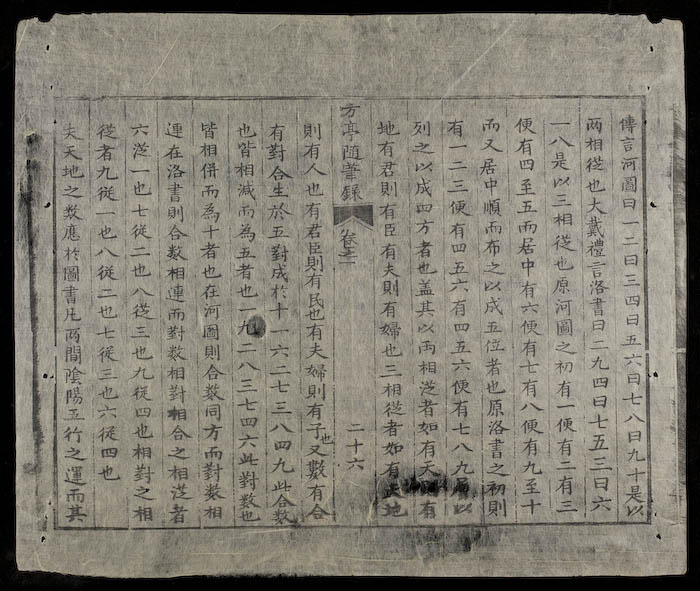 傳言河圖曰一二曰三四曰五六曰七八曰九十是以
兩相從也大戴禮言洛書曰二九四曰七五三曰六
一八是以三相從也原河圖之初有一便有二有三
便有四至五而居中有六便有七有八便有九至十
而又居中順而布之以成五位者也原洛書之初則
有一二三便有四五六有四五六便有七八九以
列之以成四方者也盖其以兩相從者如有天有
地有君則有臣有夫則有婦也三相從者如有天地
方亭隨筆錄 卷之二 二十六
則有人也有君臣則有民也有夫婦則有子也又數有合
有對合生於五對成於十一六二七三八四九此合數
也皆相減而為五者也一九二八三七四六此對數也
皆相併而為十者也在河圖則合數同方而對數相
連在洛書則合數相連而對數相對相合之相從者
六從一也七從二也八從三也九從四也相對之相
從者九從一也八從二也七從三也六從四也
夫天地之数應於圖書凡兩間陰陽五行之運而其